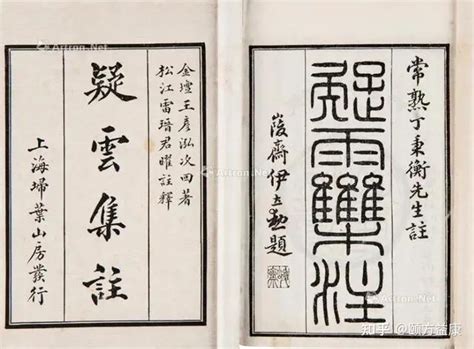 常熟丁秉衡先生註
疑雨雧注
峻齋伊立勳題
金壇王彥泓次回著
松江雷瑨君曜註釋
疑雲集註
上海埽葉山房發行
Artron.Net
Artron.Net
知乎 @颐方益康